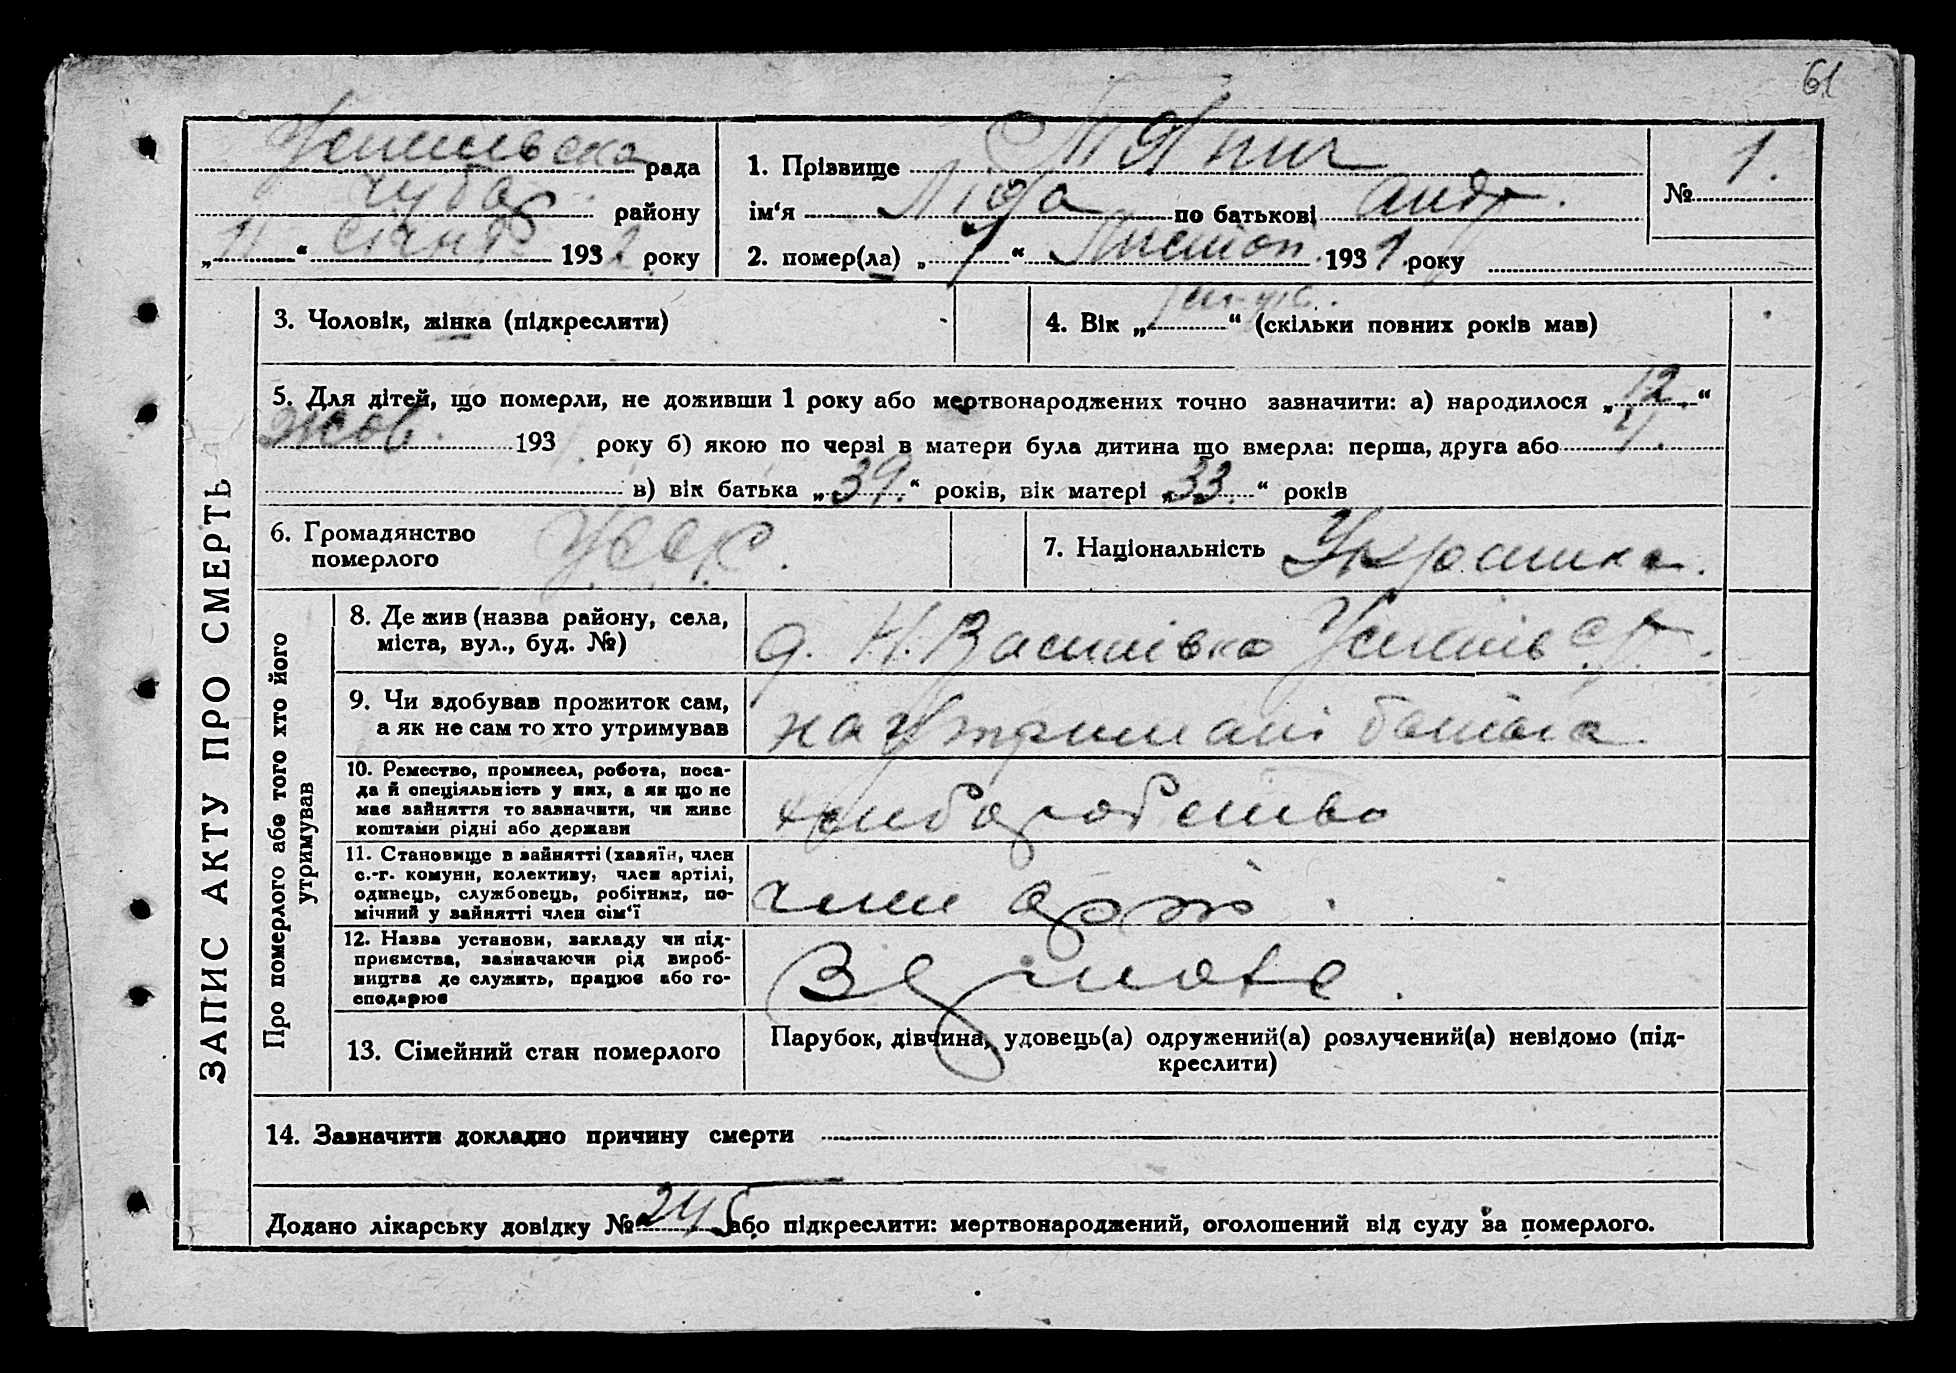 61
рада
району
„11“ Січня 1932 року
1. Прізвище
№ 1.
ім‘я Ліда по батькові Андр.
2. помер(ла) „7“ Листоп. 1931. року
3. Чоловік, жінка (підкреслити)
4. Вік „ “ (скільки повних років мав)
5. Для дітей, що померли, не доживши 1 року або мертвонароджених точно зазначити: а) народилося „12.“
жов. 193 року б) якою по черзі в матери була дитина що вмерла: перша, друга або
в) вік батька „39.“ років, вік матері „33.“ років
6. Громадянство
померлого
УССР.
7. Національність Українка.
8. Де жив (назва району, села,
міста, вул., буд. №)
Василівка
9. Чи здобував прожиток сам,
а як не сам то хто утримував
на утримані батька.
10. Ремество, промисел, робота, поса-
да й спеціяльність у них, а як що не
має зайняття то зазначити, чи живе
коштами рідні або держави
хліборобство
11. Становище в зайнятті (хазяїн, член
с.-г. комуни, колективу, член артілі,
одинець, службовець, робітник, по-
мічний у зайнятті член сім‘ї
член артілі.
12. Назва установи, закладу чи під-
приємства, зазначаючи рід вироб-
ництва де служить, працює або го-
сподарює
13. Сімейний стан померлого
Парубок, дівчина, удовець(а) одружений(а) розлучений(а) невідомо (під-
креслити)
14. Зазначити докладно причину смерти
Додано лікарську довідку № 245 або підкреслити: мертвонароджений, оголошений від суду за померлого.
ЗАПИС АКТУ ПРО СМЕРТЬ
Про померлого або того хто його
утримував